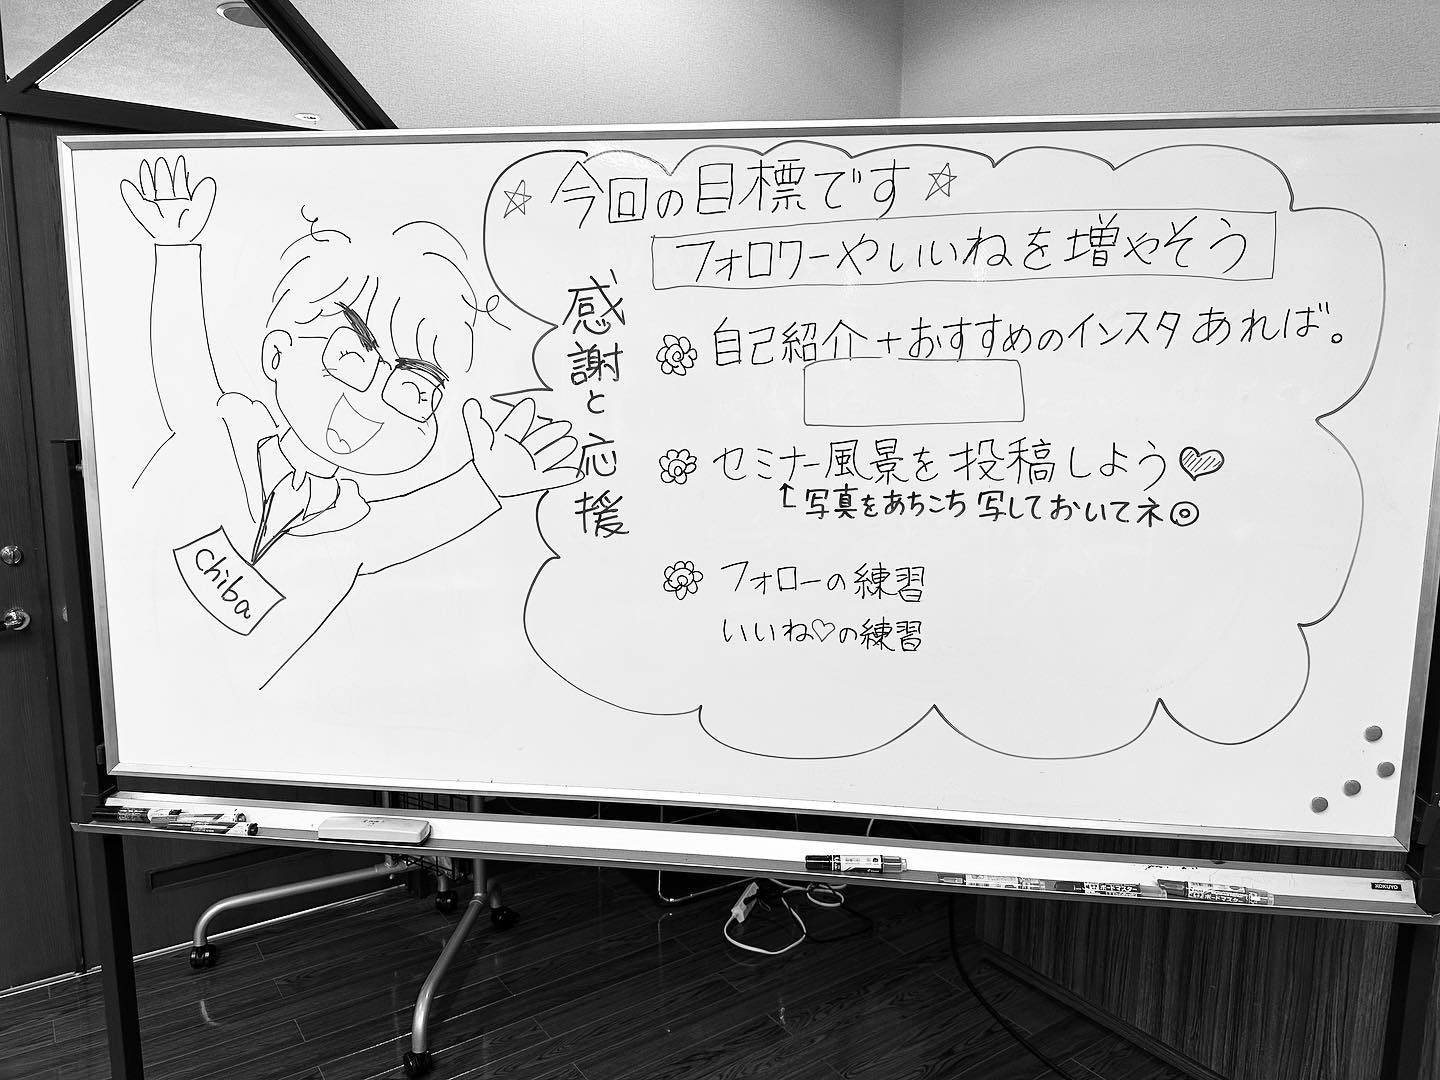 ☆今回の目標です☆
フォロワーやいいねを増やそう
感謝と応援
自己紹介+おすすめのインスタあれば。
セミナー風景を投稿しよう♥
↑写真をあちこち写しておいてネ◎
フォローの練習
いいね♡の練習
Chiba
KOKUYO
ボードマスター
ボードマスター